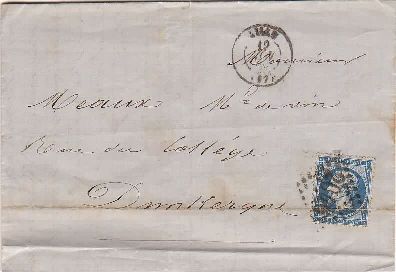 LILLE
19
(57)
Monsieur
Meaux Md de vins
Rue du Collége
Dunkerque